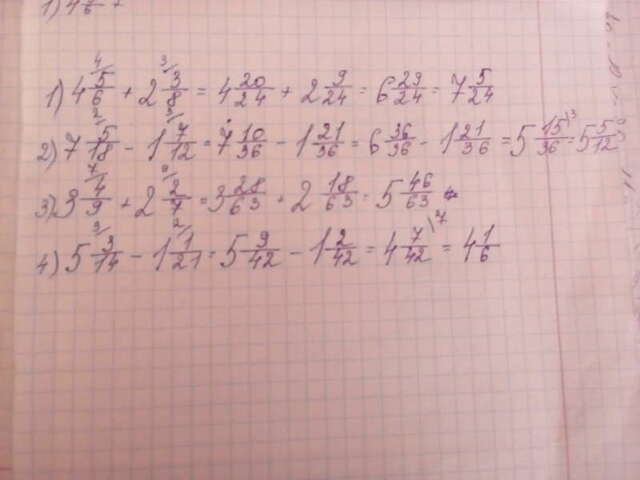 1) 4
1) 4 5/6 + 2 3/8 = 4 20/24 + 2 9/24 = 6 29/24 = 7 5/24
2) 7 5/18 - 1 7/12 = 7 10/36 - 1 21/36 = 6 36/36 - 1 21/36 = 5 15/36 = 5 5/12
3) 3 4/9 + 2 2/7 = 3 28/63 + 2 18/63 = 5 46/63
4) 5 3/14 - 1 1/21 = 5 9/42 - 1 2/42 = 4 7/42 = 4 1/6